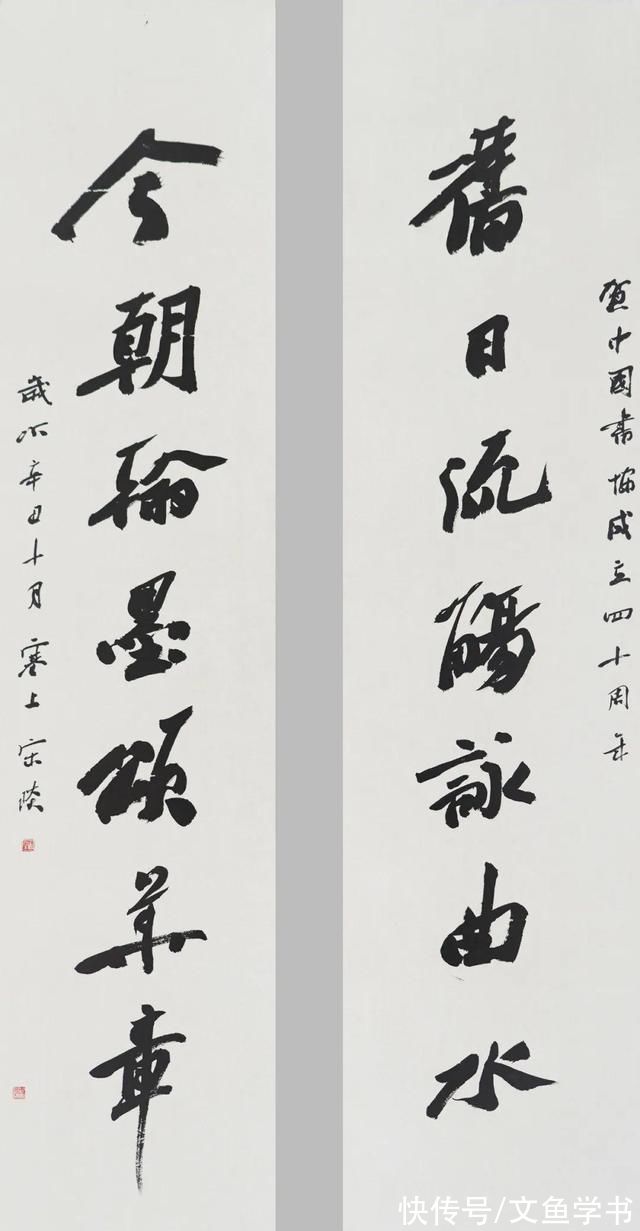 賀中国書協成立四十周年
舊日流觴詠曲水
今朝翰墨頌華章
歲次辛丑十月塞上宋琰
快传号/文鱼学书